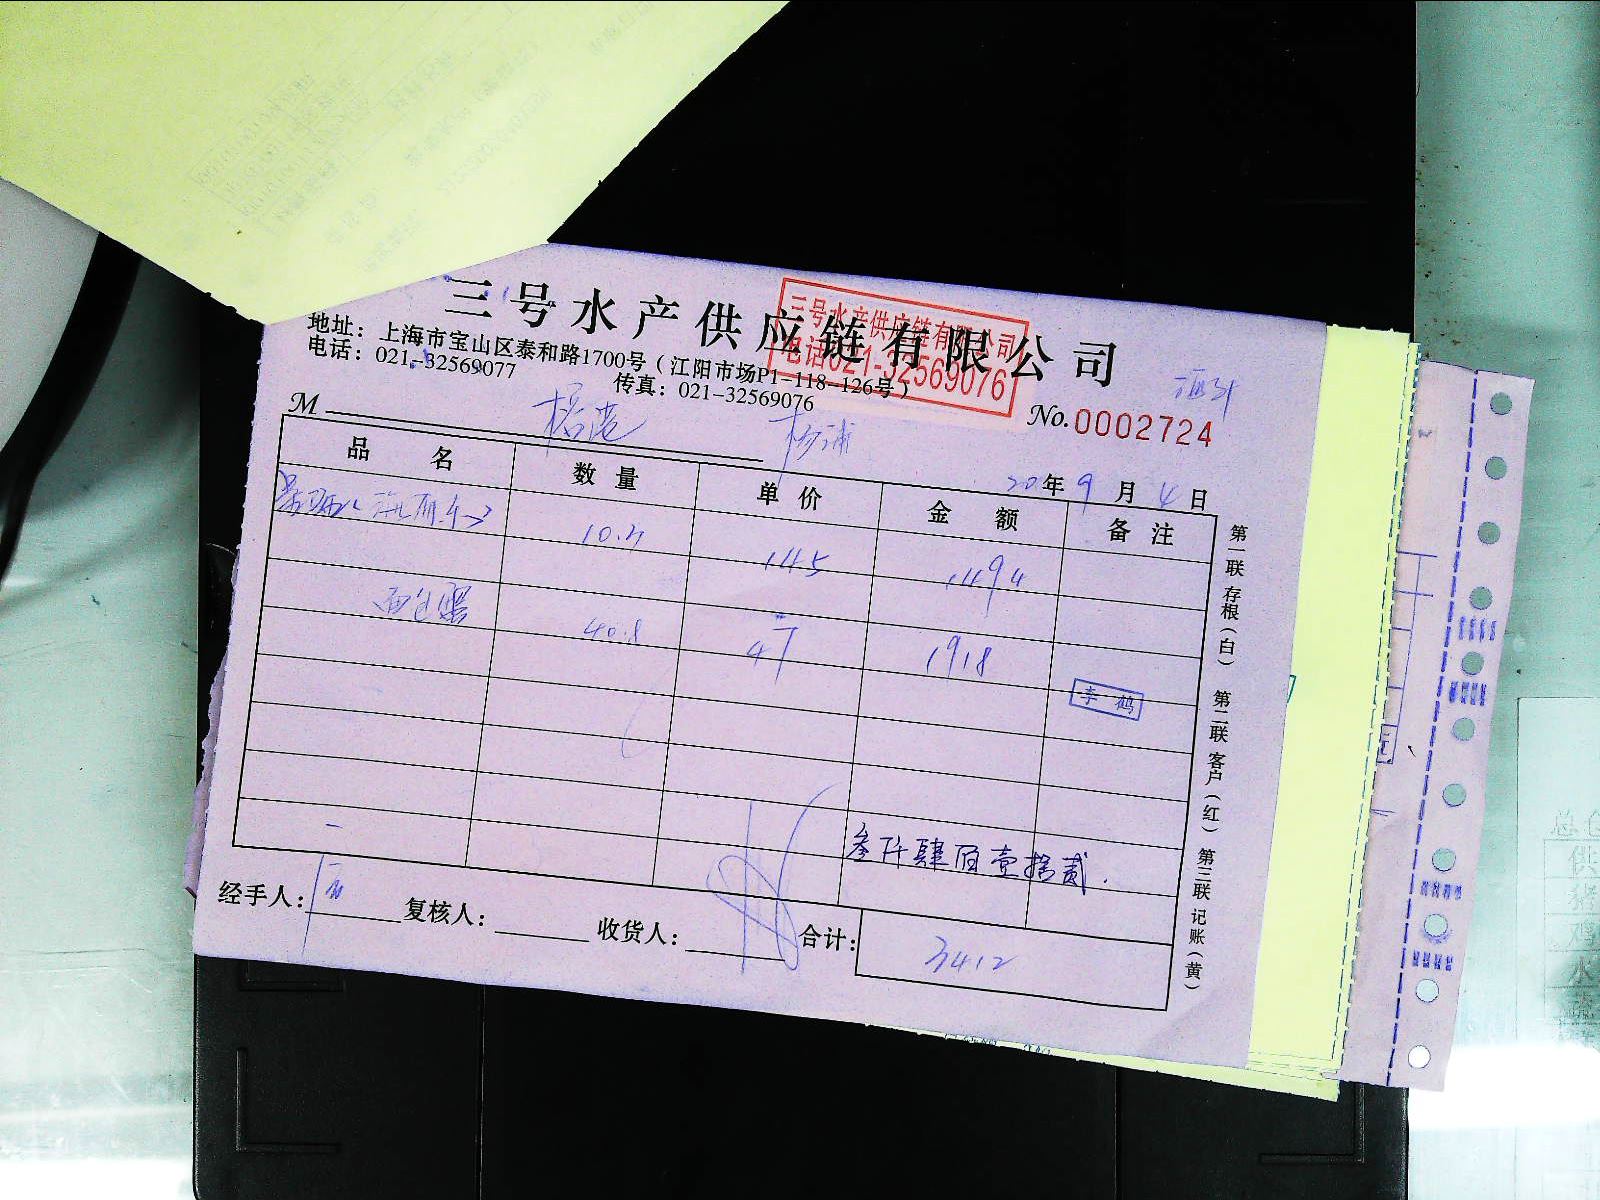 三号水产供应链有限公司
三号水产供应链有限公司
电话021-32569076
地址：上海市宝山区泰和路1700号（江阳市场P1-118-126号）
电话：021-32569077 传真：021-32569076
M 杨浦
No.0002724
20年9月4日
品名 数量 单价 金额 备注
10.3 145 1494
面包蟹 40.8 47 1918
李鹤
叁仟肆佰壹拾贰.
经手人： 复核人： 收货人： 合计： 3412
第一联 存根（白） 第二联 客户（红） 第三联 记账（黄）